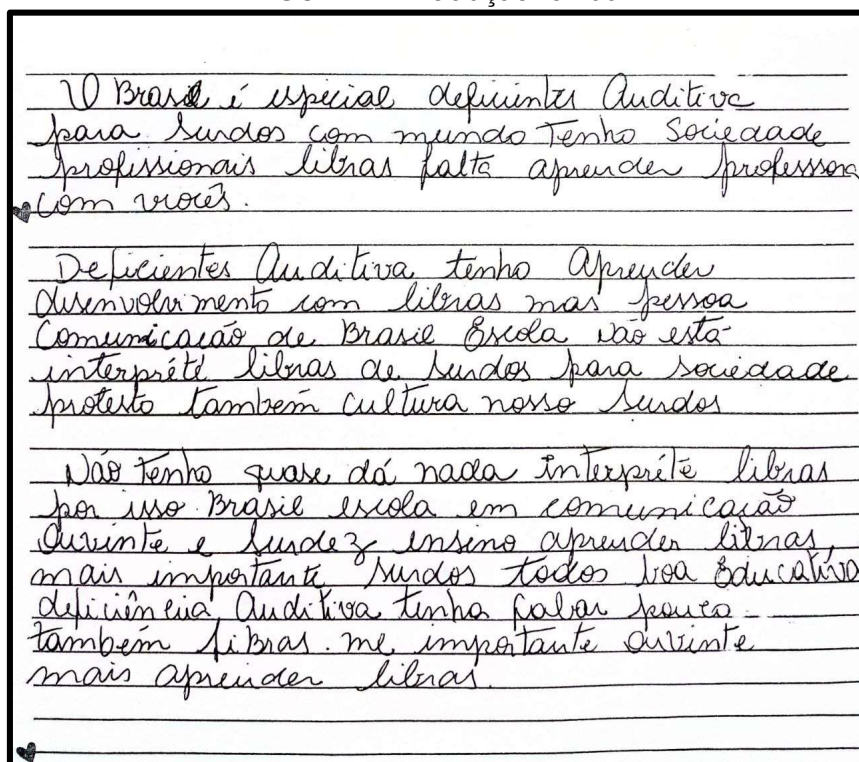 O Brasil é especial deficientes Auditiva
para surdos com mundo Tenho Sociedade
profissionais libras falta aprender professora
com vocês.
Deficientes Auditiva tenho Aprender
desenvolvimento com libras mas pessoa
Comunicação de Brasil Escola Não está
interpréte libras de surdos para sociedade
protesto também cultura nosso surdos
Não Tenho quase dá nada Interpréte libras
por isso Brasil escola em comunicação
Ouvinte e surdez ensino aprender libras,
mais importante surdos todos boa Educativa
deficiência Auditiva tenha falar pouco
também libras. me importante ouvinte
mais aprender libras.